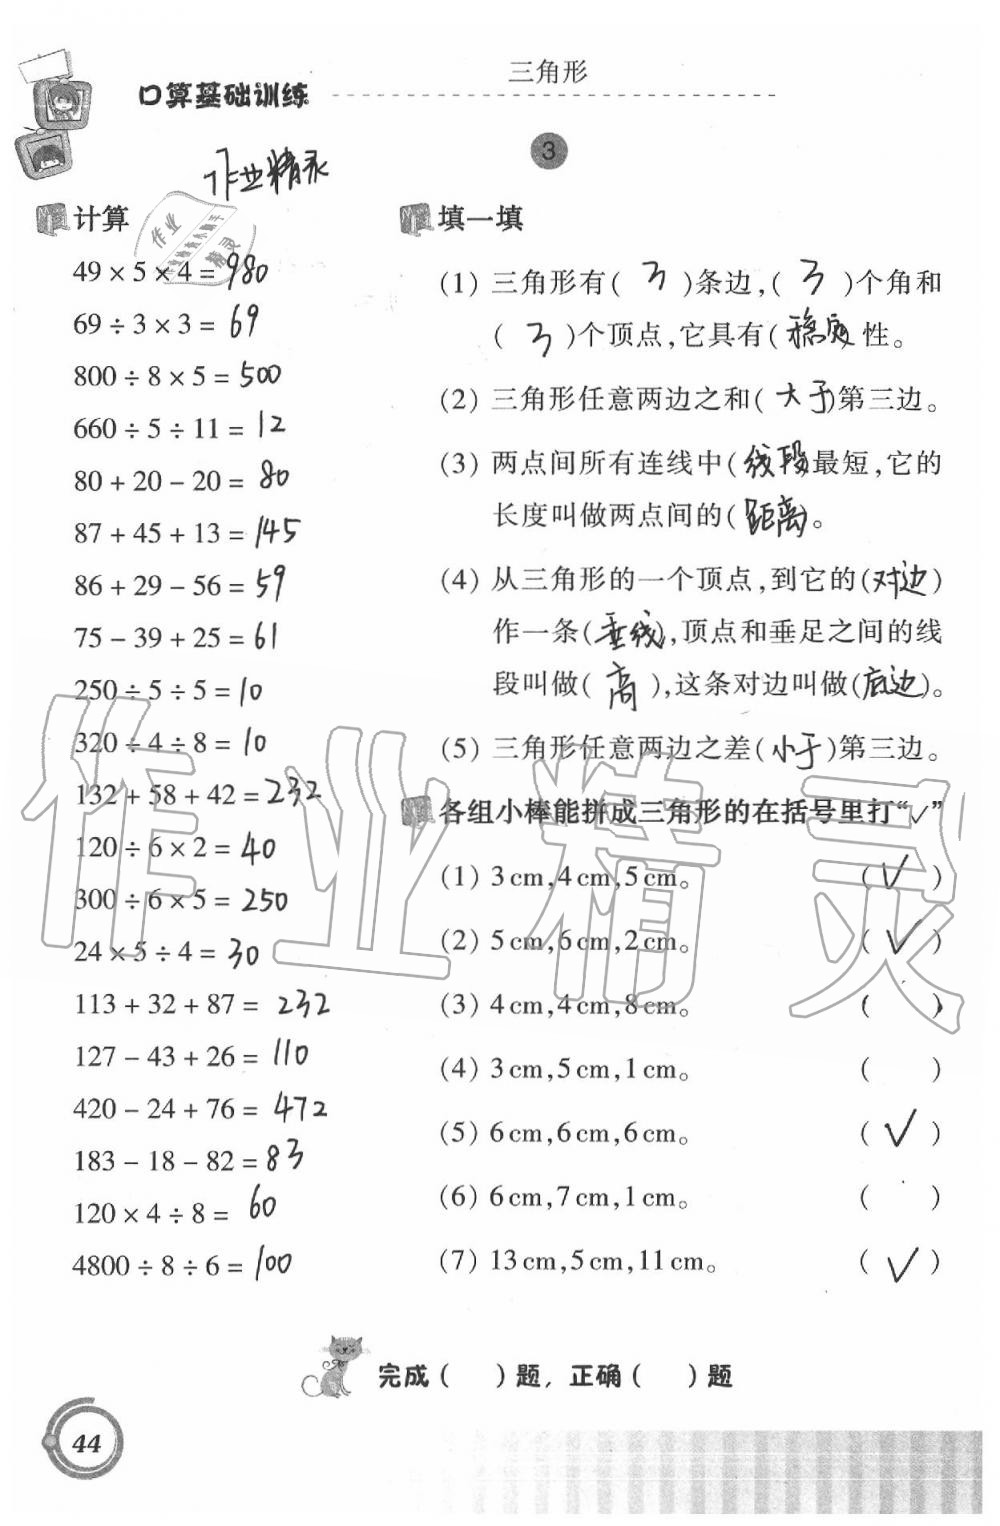 三角形
口算基础训练
3
作业精灵
计算
49 × 5 × 4 = 980
69 ÷ 3 × 3 = 69
800 ÷ 8 × 5 = 500
660 ÷ 5 ÷ 11 = 12
80 + 20 - 20 = 80
87 + 45 + 13 = 145
86 + 29 - 56 = 59
75 - 39 + 25 = 61
250 ÷ 5 ÷ 5 = 10
320 ÷ 4 ÷ 8 = 10
132 + 58 + 42 = 232
120 ÷ 6 × 2 = 40
300 ÷ 6 × 5 = 250
24 × 5 ÷ 4 = 30
113 + 32 + 87 = 232
127 - 43 + 26 = 110
420 - 24 + 76 = 472
183 - 18 - 82 = 83
120 × 4 ÷ 8 = 60
4800 ÷ 8 ÷ 6 = 100
填一填
(1) 三角形有( 3 )条边,( 3 )个角和
( 3 )个顶点,它具有(稳定)性。
(2) 三角形任意两边之和(大于)第三边。
(3) 两点间所有连线中(线段)最短,它的
长度叫做两点间的(距离)。
(4) 从三角形的一个顶点,到它的(对边)
作一条(垂线),顶点和垂足之间的线
段叫做( 高 ),这条对边叫做(底边)。
(5) 三角形任意两边之差(小于)第三边。
各组小棒能拼成三角形的在括号里打“√”
(1) 3 cm,4 cm,5 cm。 ( √ )
(2) 5 cm,6 cm,2 cm。 ( √ )
(3) 4 cm,4 cm,8 cm。 ( )
(4) 3 cm,5 cm,1 cm。 ( )
(5) 6 cm,6 cm,6 cm。 ( √ )
(6) 6 cm,7 cm,1 cm。 ( )
(7) 13 cm,5 cm,11 cm。 ( √ )
完成( )题, 正确( )题
44
作业精灵